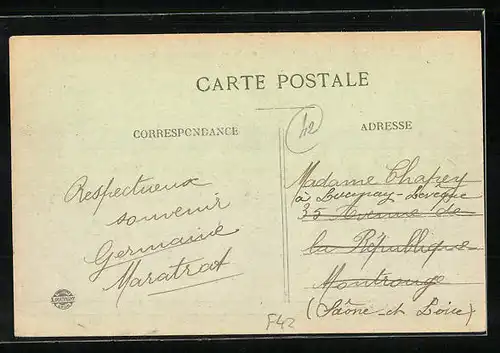 CARTE POSTALE
CORRESPONDANCE
ADRESSE
42
Respectueux
souvenir
Germaine
Maratrat
Madame Chapey
à Lucenay-Levêque
35 Avenue de
la République
Montrouge
(Saône-et Loire)
F42